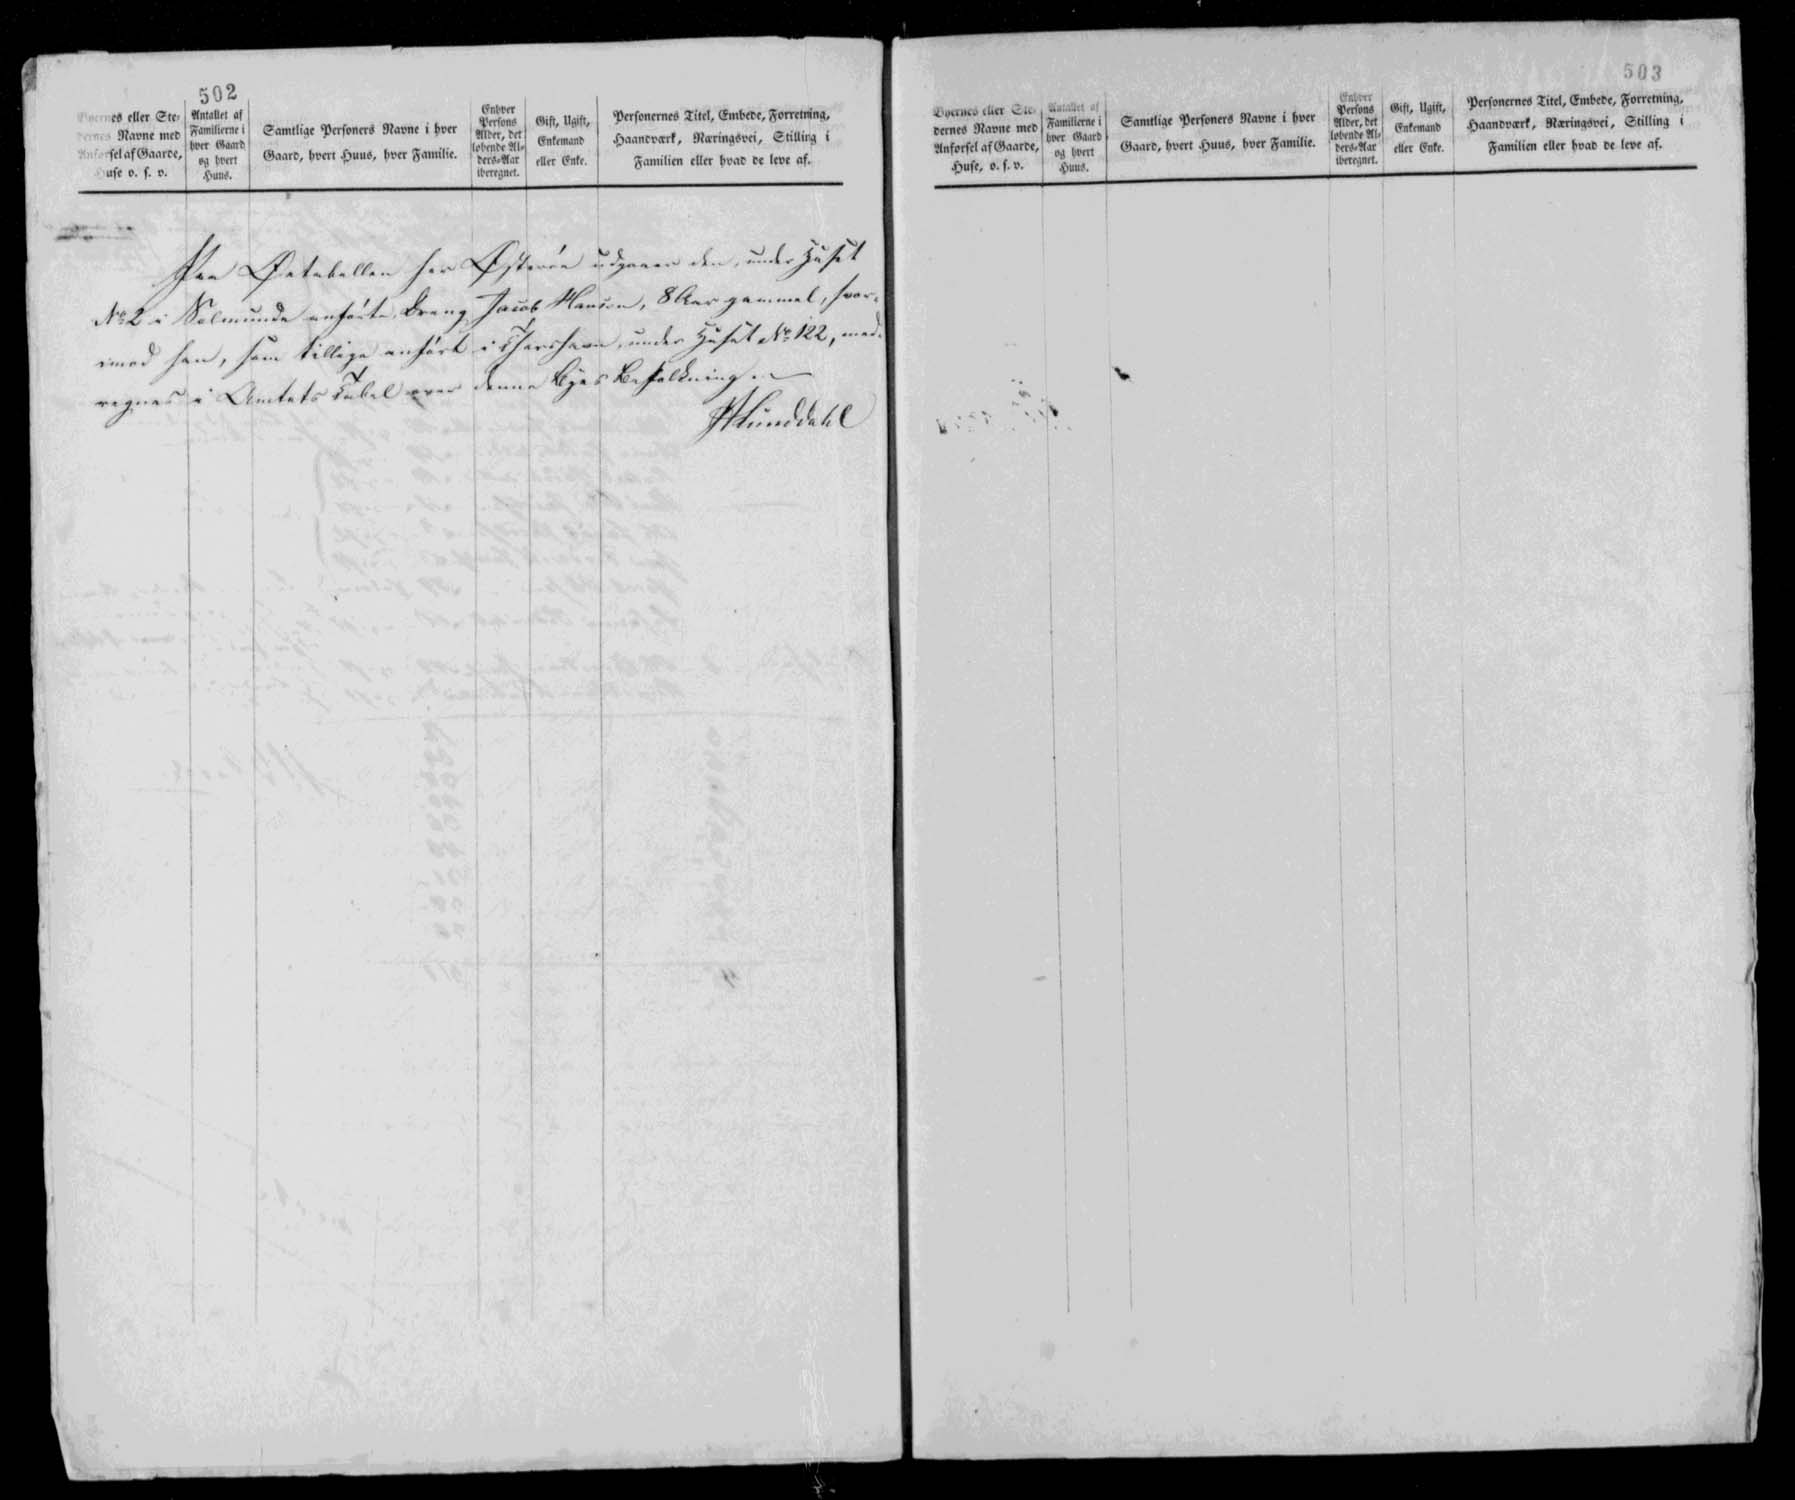 502
Byernes eller Ste-
dernes Navne med
Anførsel af Gaarde,
Huse o. s. v.
Antallet af
Familierne i
hver Gaard
og hvert
Huus.
Samtlige Personers Navne i hver
Gaard, hvert Huus, hver Familie.
Enhver
Persons
Alder, det
løbende Al-
ders-Aar
iberegnet.
Gift, Ugift,
Enkemand
eller Enke.
Personernes Titel, Embede, Forretning,
Haandværk, Næringsvei, Stilling i
Familien eller hvad de leve af.
Paa Øetabellen for Østerøe udgaaer den, under Huset
No. 2 i Solmunde anførte Dreng Jacob Hansen, 8 Aar gammel, hvor-
imod han, som tillige anført i Thorshavn, under Huset No. 122, med-
regnes i Amtets Tabel over denne Byes Befolkning.
HLunddahl
503
Byernes eller Ste-
dernes Navne med
Anførsel af Gaarde,
Huse, o. s. v.
Antallet af
Familierne i
hver Gaard
og hvert
Huus.
Samtlige Personers Navne i hver
Gaard, hvert Huus, hver Familie.
Enhver
Persons
Alder, det
løbende Al-
ders-Aar
iberegnet.
Gift, Ugift,
Enkemand
eller Enke.
Personernes Titel, Embede, Forretning,
Haandværk, Næringsvei, Stilling i
Familien eller hvad de leve af.